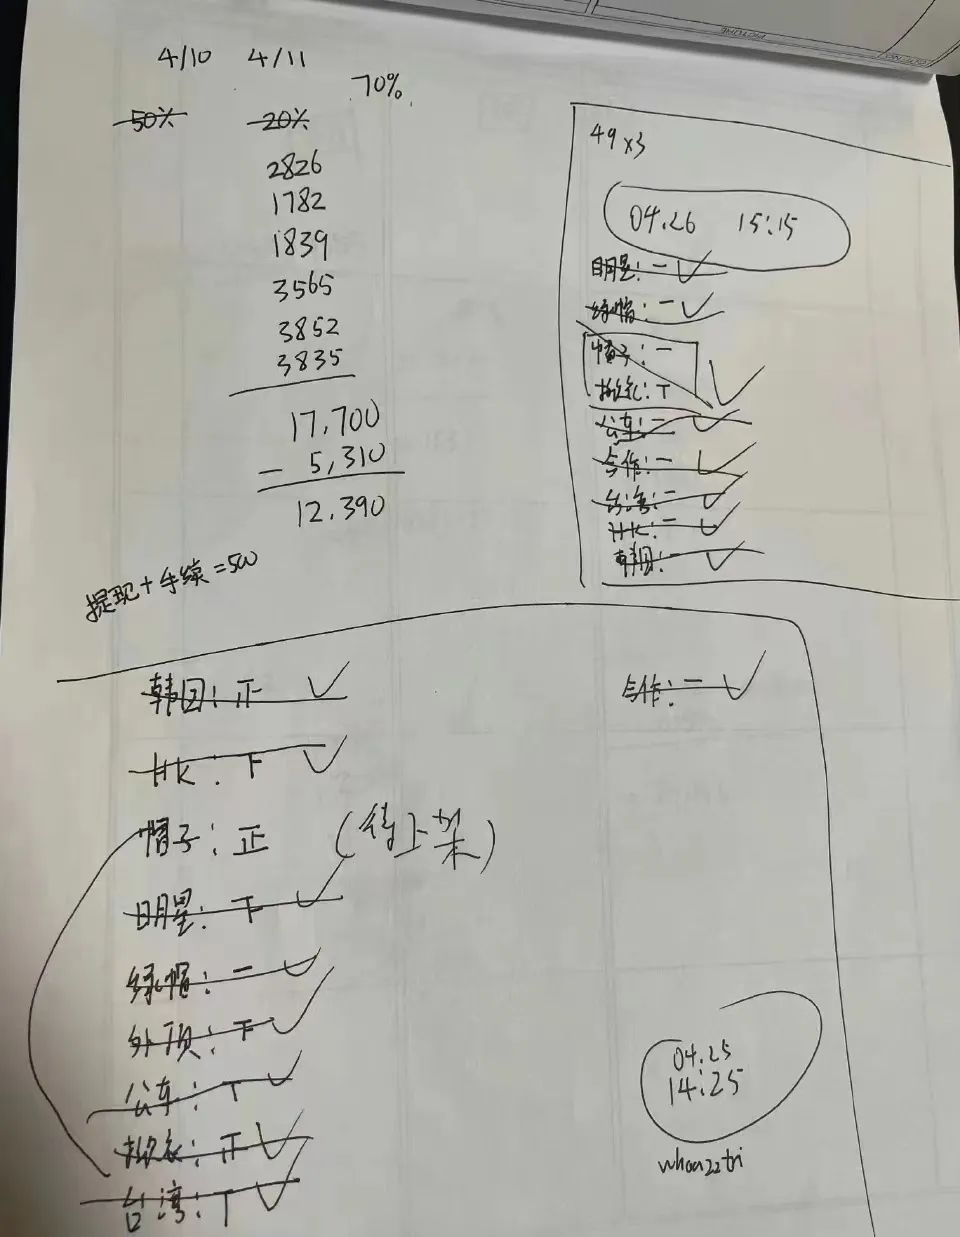 4/10 4/11
70%
50% 20%
2826
1782
1839
3565
3852
3835
17,700
- 5,310
12,390
提现+手续=500
49x3
04.26 15:15
明星:一
绿帽:一
帽子:一
公车:一
合作:一
台湾:一
HK:一
韩团:一
韩团:正
HK:下
帽子:正 (待上架)
明星:下
绿帽:一
外顶:下
公车:T
台湾:T
合作:一
04.25
14:25